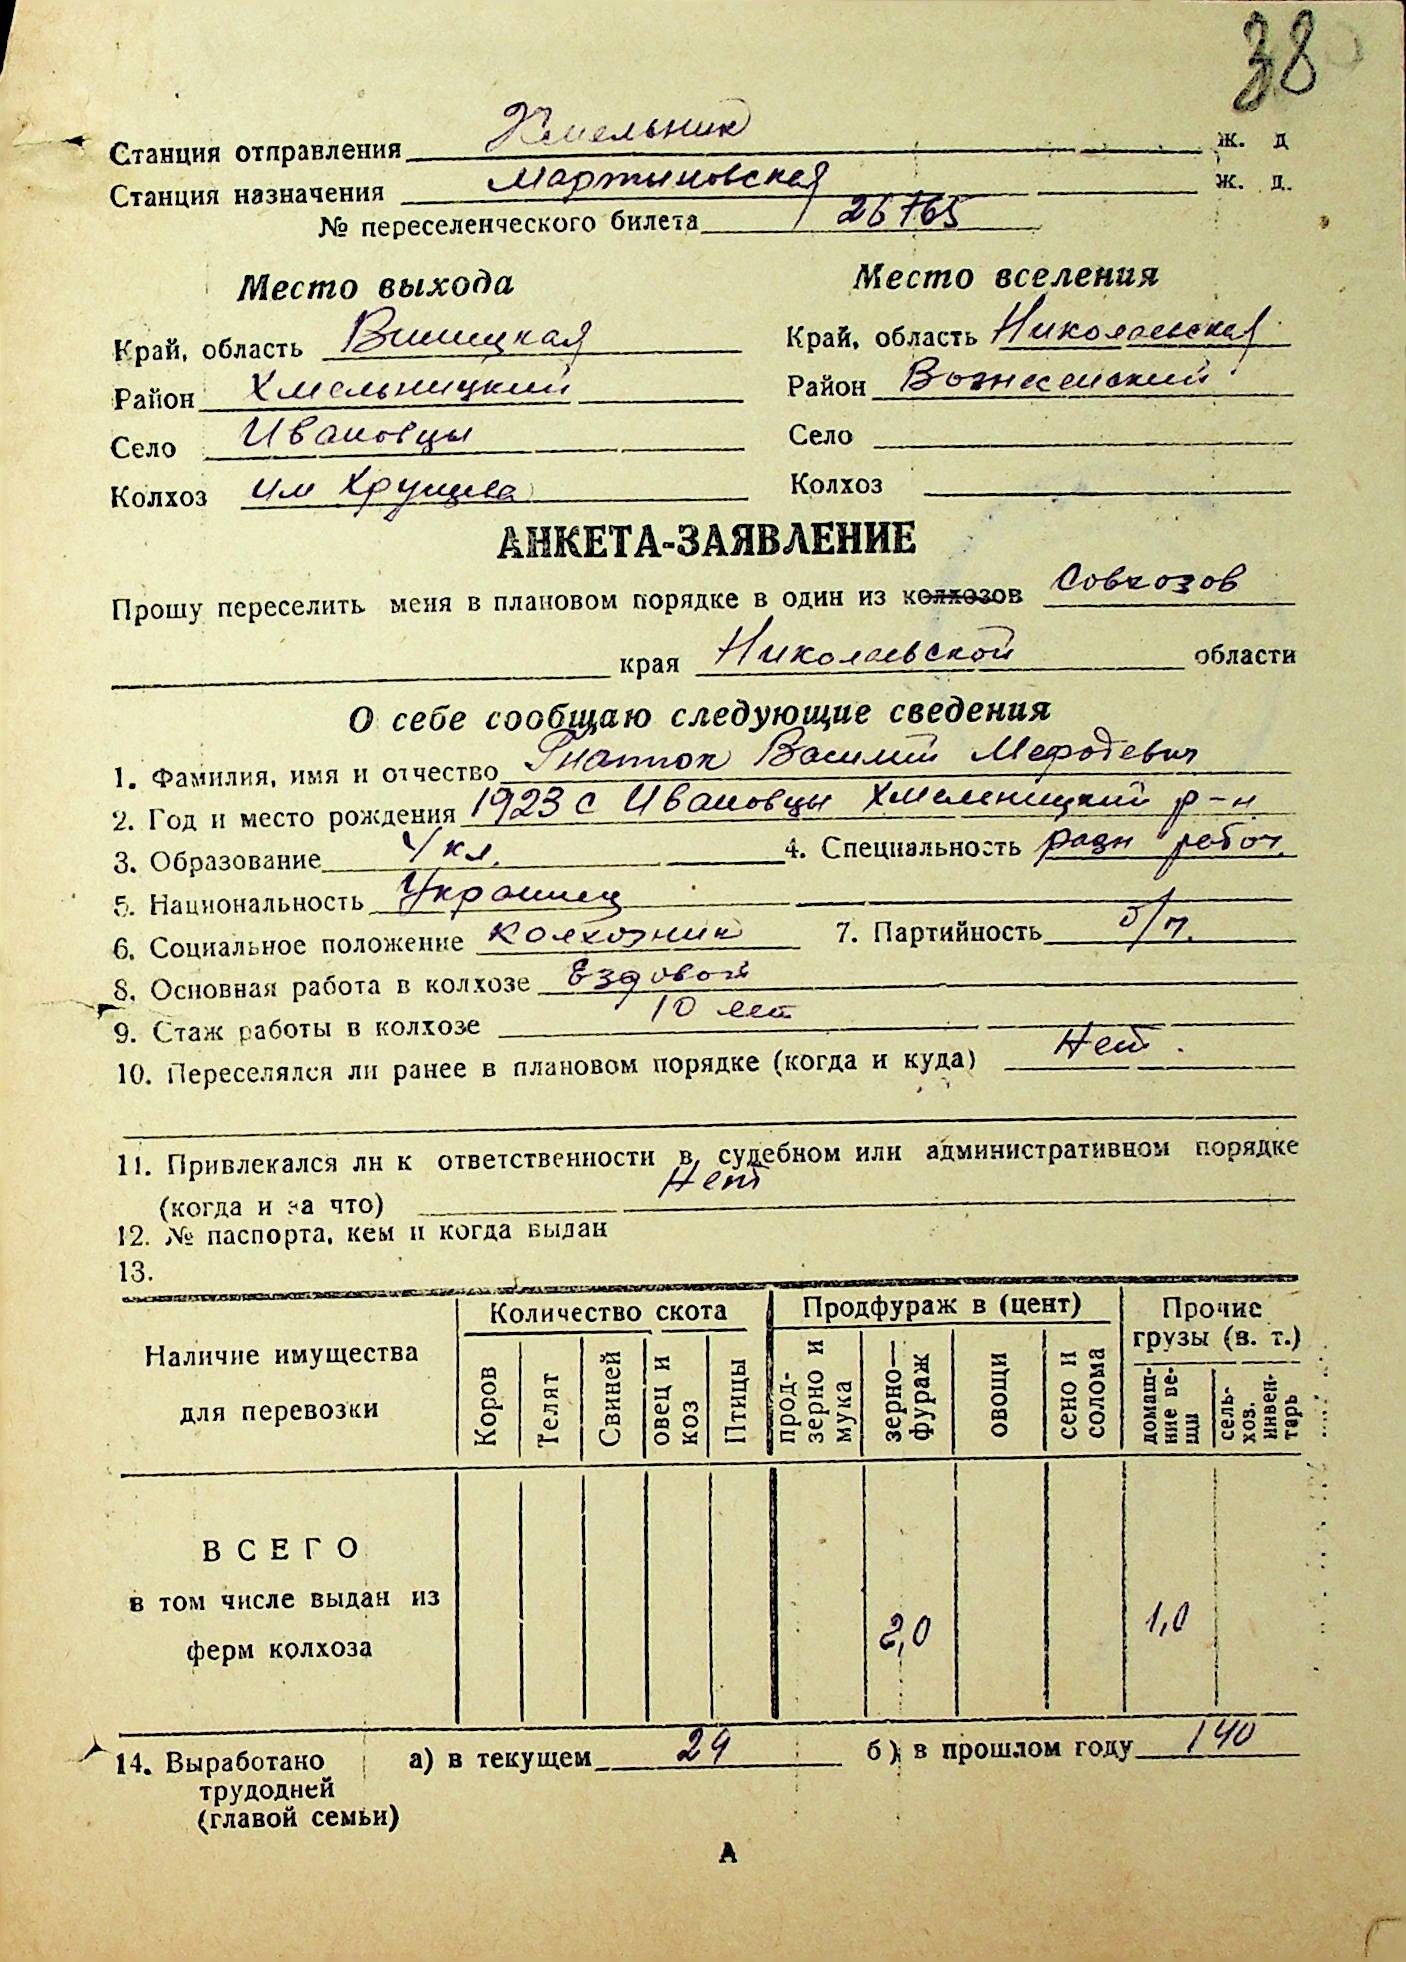 38
Станция отправления Хмельник ж. д
Станция назначения Мартыновская ж. д.
№ переселенческого билета 26765
Место выхода
Место вселения
Край, область Виницкая
Край, область Николаевская
Район Хмельницкий
Район Вознесенский
Село Ивановцы
Село
Колхоз им Хрущева
Колхоз
АНКЕТА-ЗАЯВЛЕНИЕ
Прошу переселить меня в плановом порядке в один из колхозов совхозов
края Николаевской области
О себе сообщаю следующие сведения
1. Фамилия, имя и отчество Гнатюк Василий Мефодевич
2. Год и место рождения 1923 с Ивановцы Хмельницкий р-н
3. Образование 4 кл. 4. Специальность разн рабоч.
5. Национальность Украинец
6. Социальное положение колхозник 7. Партийность б/п.
8. Основная работа в колхозе Ездовой
9. Стаж работы в колхозе 10 лет
10. Переселялся ли ранее в плановом порядке (когда и куда) Нет.
11. Привлекался ли к ответственности в судебном или административном порядке
(когда и за что) Нет
12. № паспорта, кем и когда выдан
13.
Наличие имущества
для перевозки
Количество скота
Продфураж в (цент)
Прочие
грузы (в. т.)
Коров
Телят
Свиней
овец и
коз
Птицы
прод-
зерно и
мука
зерно—
фураж
овощи
сено и
солома
домаш-
ние ве-
щи
сель-
хоз.
инвен-
тарь
ВСЕГО
в том числе выдан из
ферм колхоза
2,0
1,0
14. Выработано а) в текущем 24 б) в прошлом году 140
трудодней
(главой семьи)
А